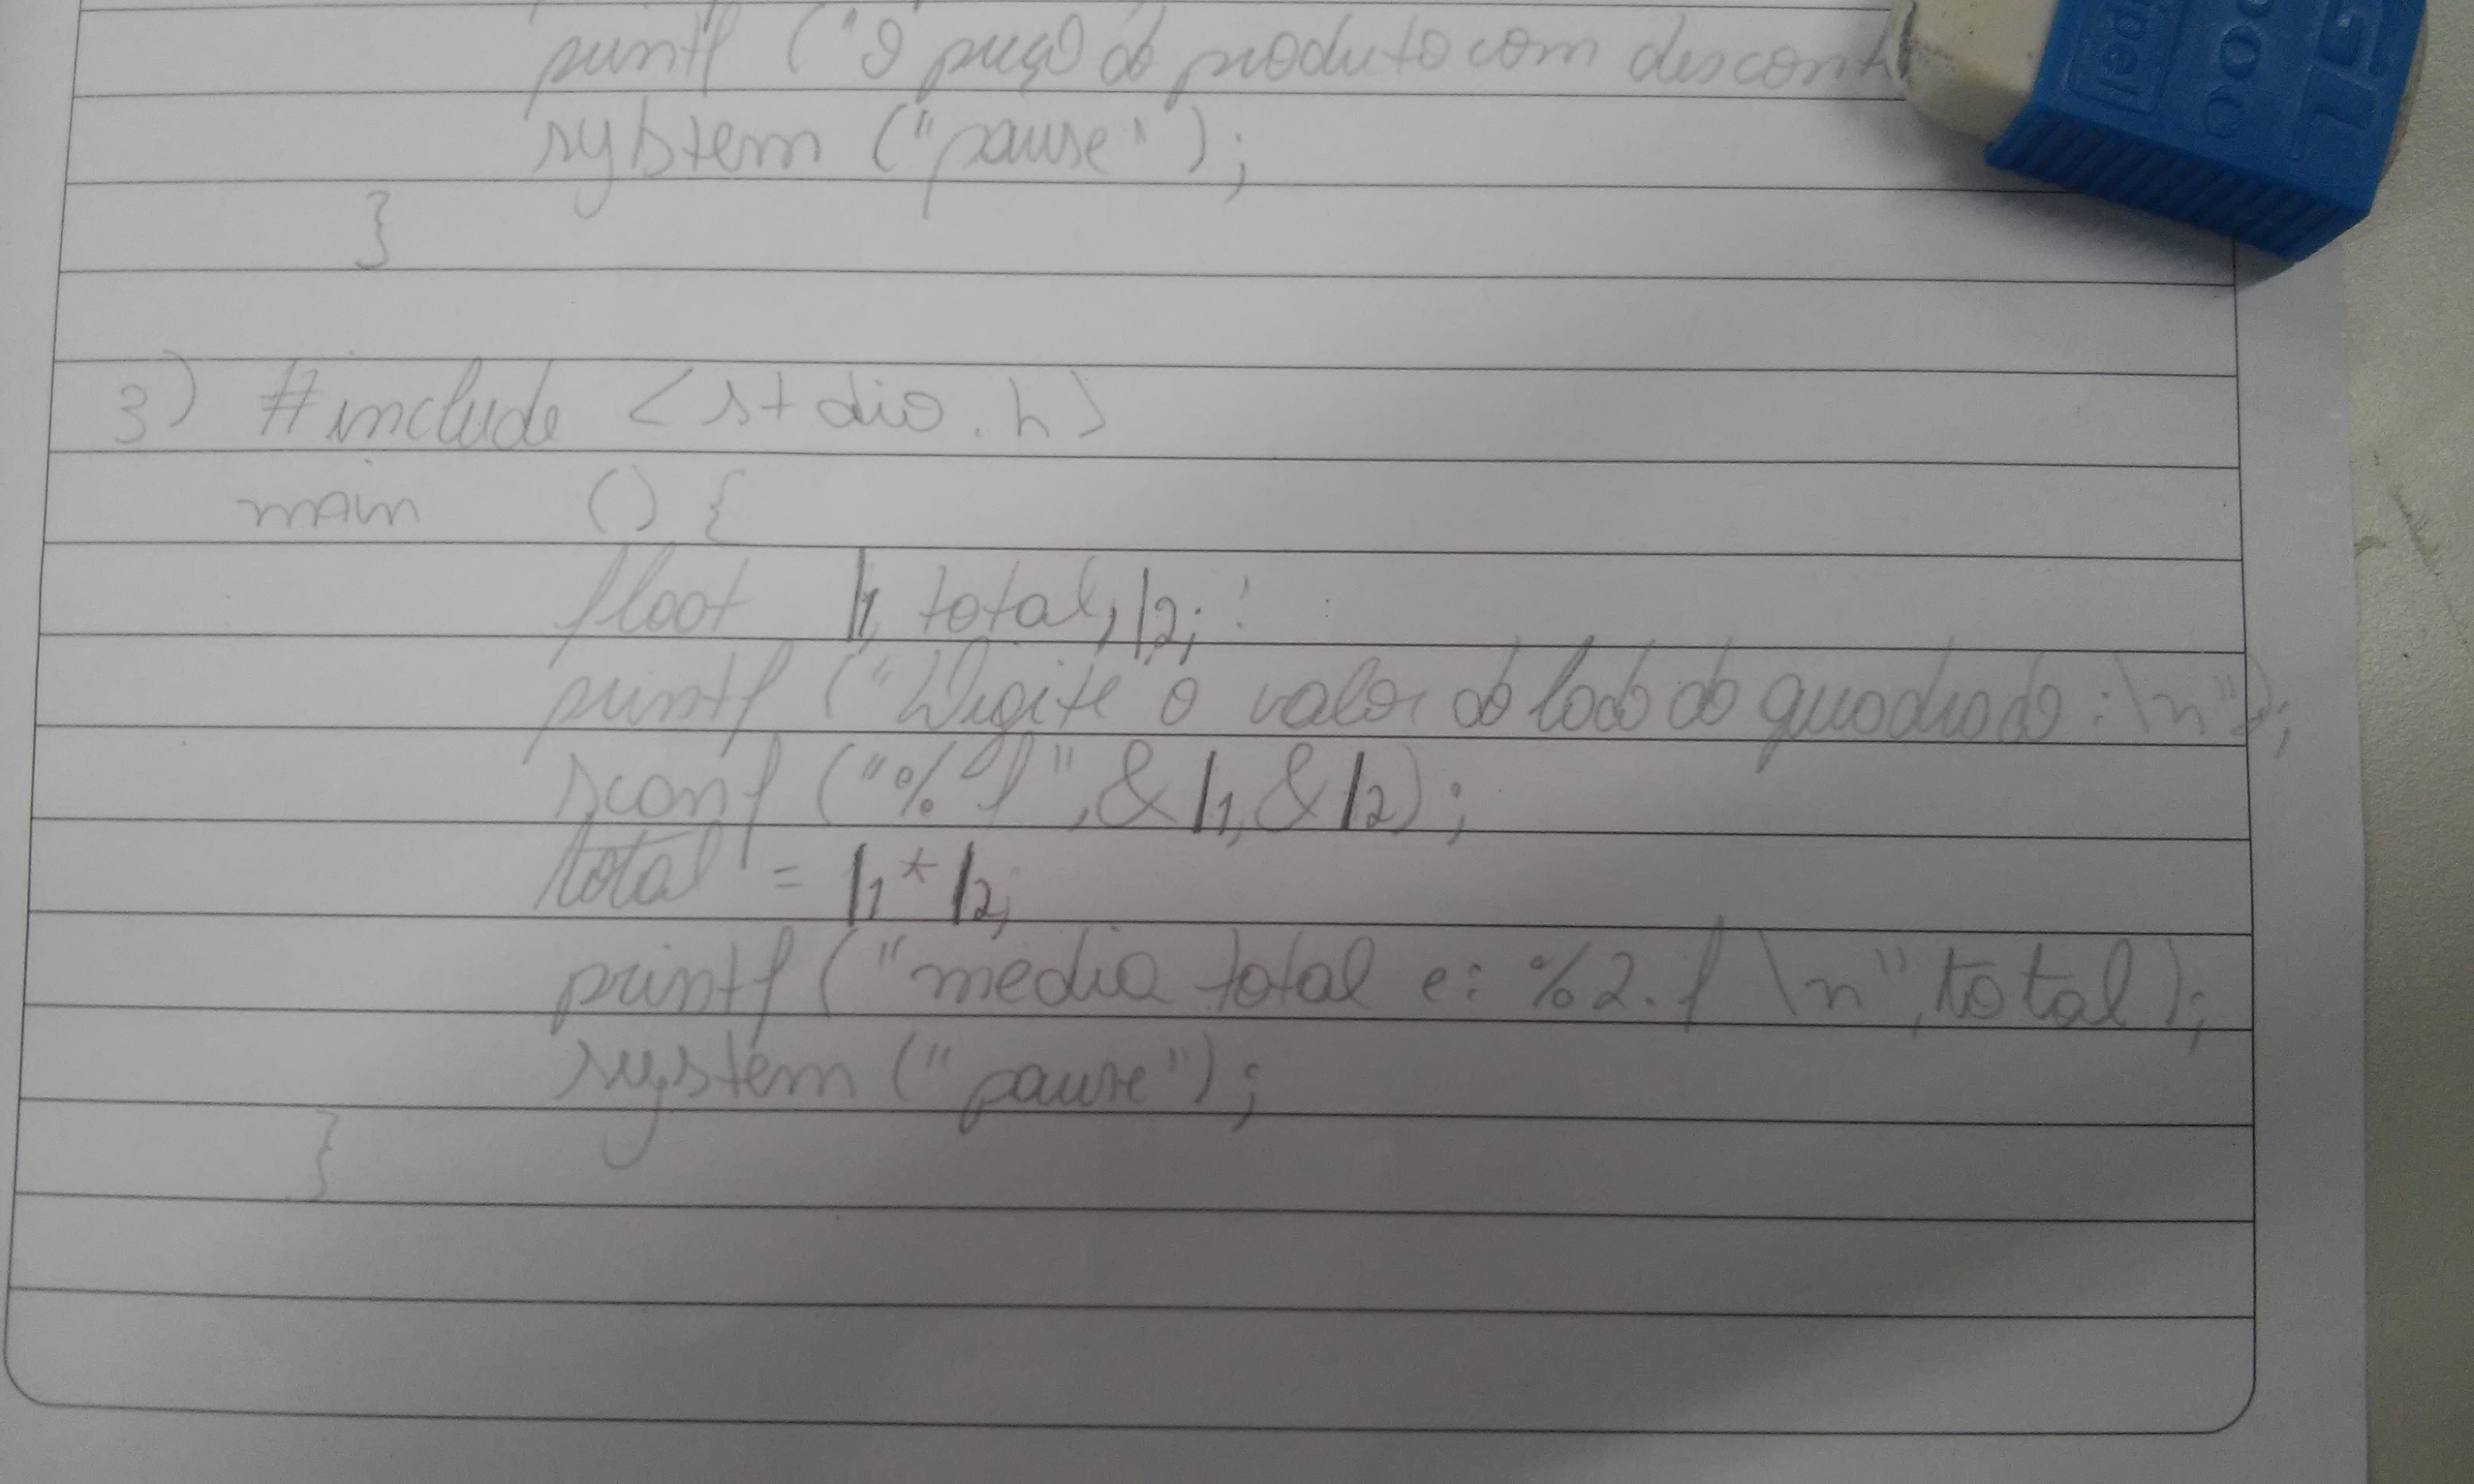 printf ("O preço do produto com descont
system ("pause");
}
3) #include <stdio.h>
main () {
float l1, total, l2;
printf ("Digite o valor do lado do quadrado: \n");
scanf ("%f", &l1, &l2);
total = l1 * l2;
printf ("media total e: %2.f \n", total);
system ("pause");
}